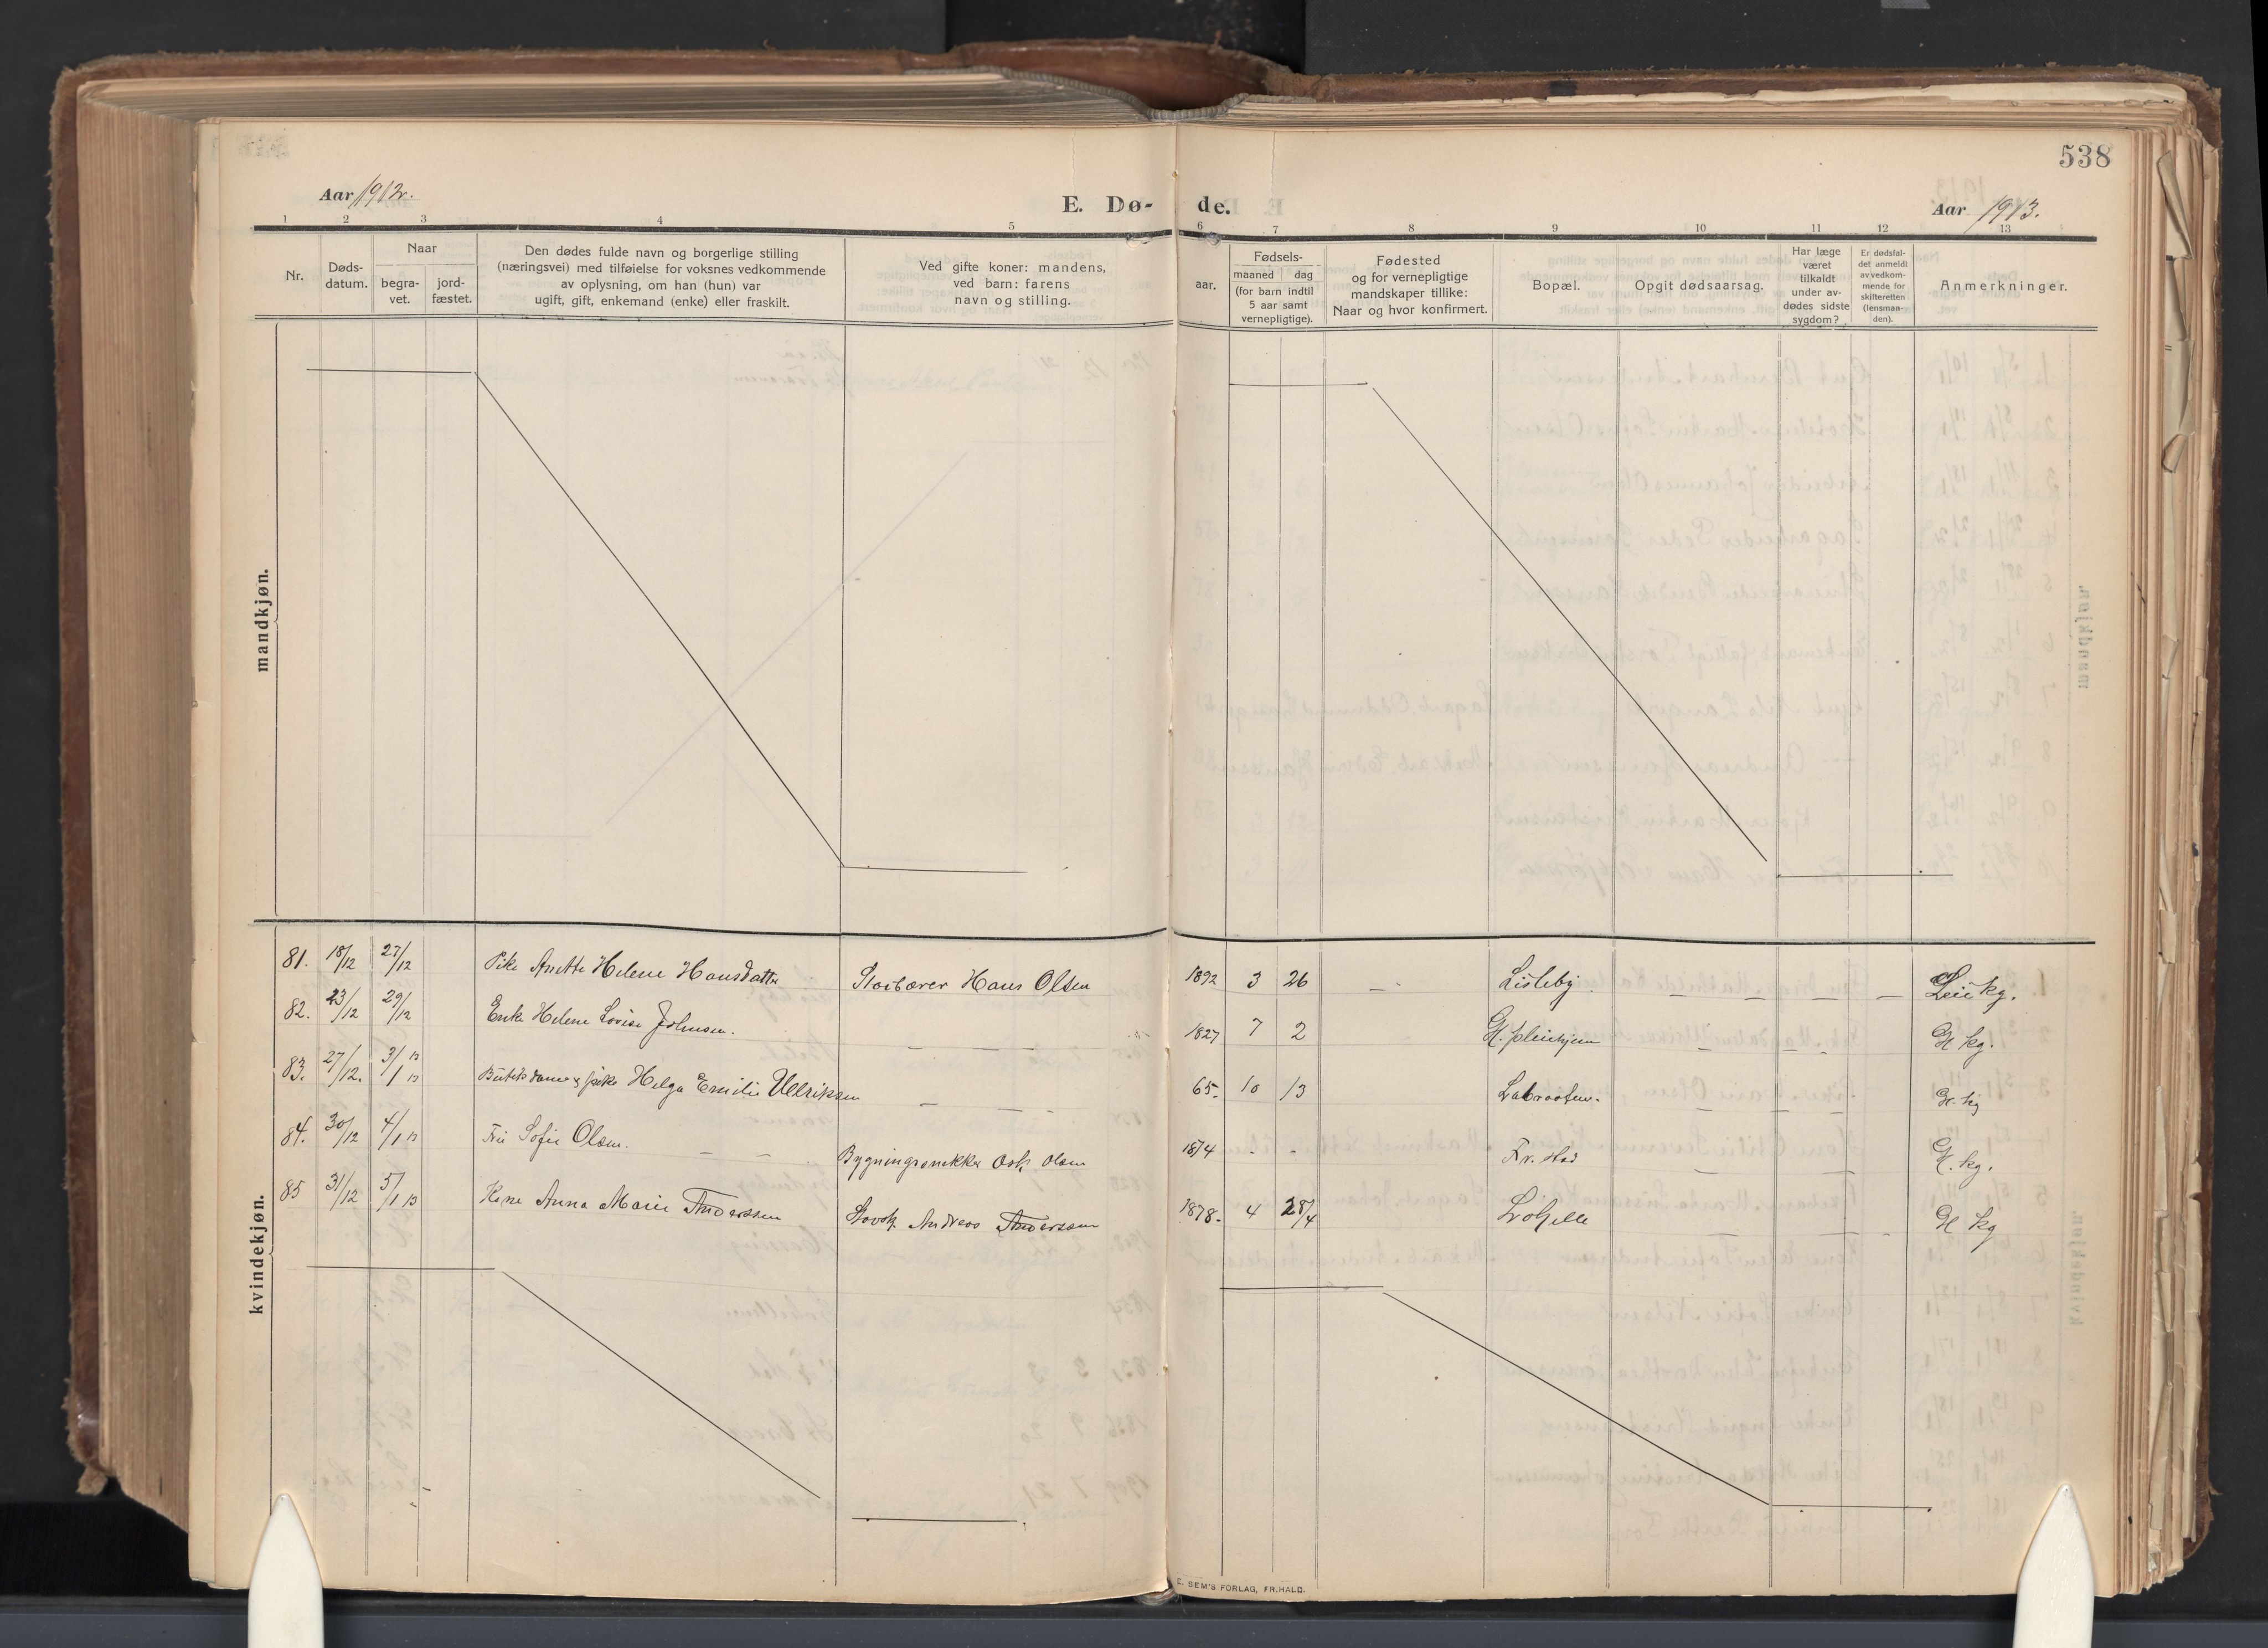 538
Aar 1912.
E. Dø-
de.
Aar 1913.
1 2 3 4 5 6 7 8 9 10 11 12 13
Nr.
Døds-
datum.
Naar
begra-
vet.
jord-
fæstet.
Den dødes fulde navn og borgerlige stilling
(næringsvei) med tilføielse for voksnes vedkommende
av oplysning, om han (hun) var
ugift, gift, enkemand (enke) eller fraskilt.
Ved gifte koner: mandens,
ved barn: farens
navn og stilling.
Fødsels-
aar.
maaned dag
(for barn indtil
5 aar samt
vernepligtige).
Fødested
og for vernepligtige
mandskaper tillike:
Naar og hvor konfirmert.
Bopæl.
Opgit dødsaarsag.
Har læge
været
tilkaldt
under av-
dødes sidste
sygdom?
Er dødsfal-
det anmeldt
av vedkom-
mende for
skifteretten
(lensman-
den).
Anmerkninger.
mandkjøn.
kvindekjøn.
81. 18/12 27/12 Pike Anette Helene Hansdatter Hans Olsen 1892 3 26 — Lisleby — — — — Leie kg.
82. 23/12 29/12 Enke Helene Lovise Johnsen. — — — 1827 7 2 G. pleiehjem — — — G kg.
83. 27/12. 3/1 13 Butiksdame pike Helga Emilie Ulriksen — — - 65. 10 13 Labraaten. — — — G. kg
84. 30/12 4/1 13 Fru Sofie Olsen. — — Bygningssnekker Osk Olsen 1874 - - Fr. stad — — — G. kg.
85 31/12 5/1 13 Kone Anna Marie Anderssen Andreas Anderssen 1878. 4 28/4 — — — G kg
E. SEM'S FORLAG, FR.HALD.